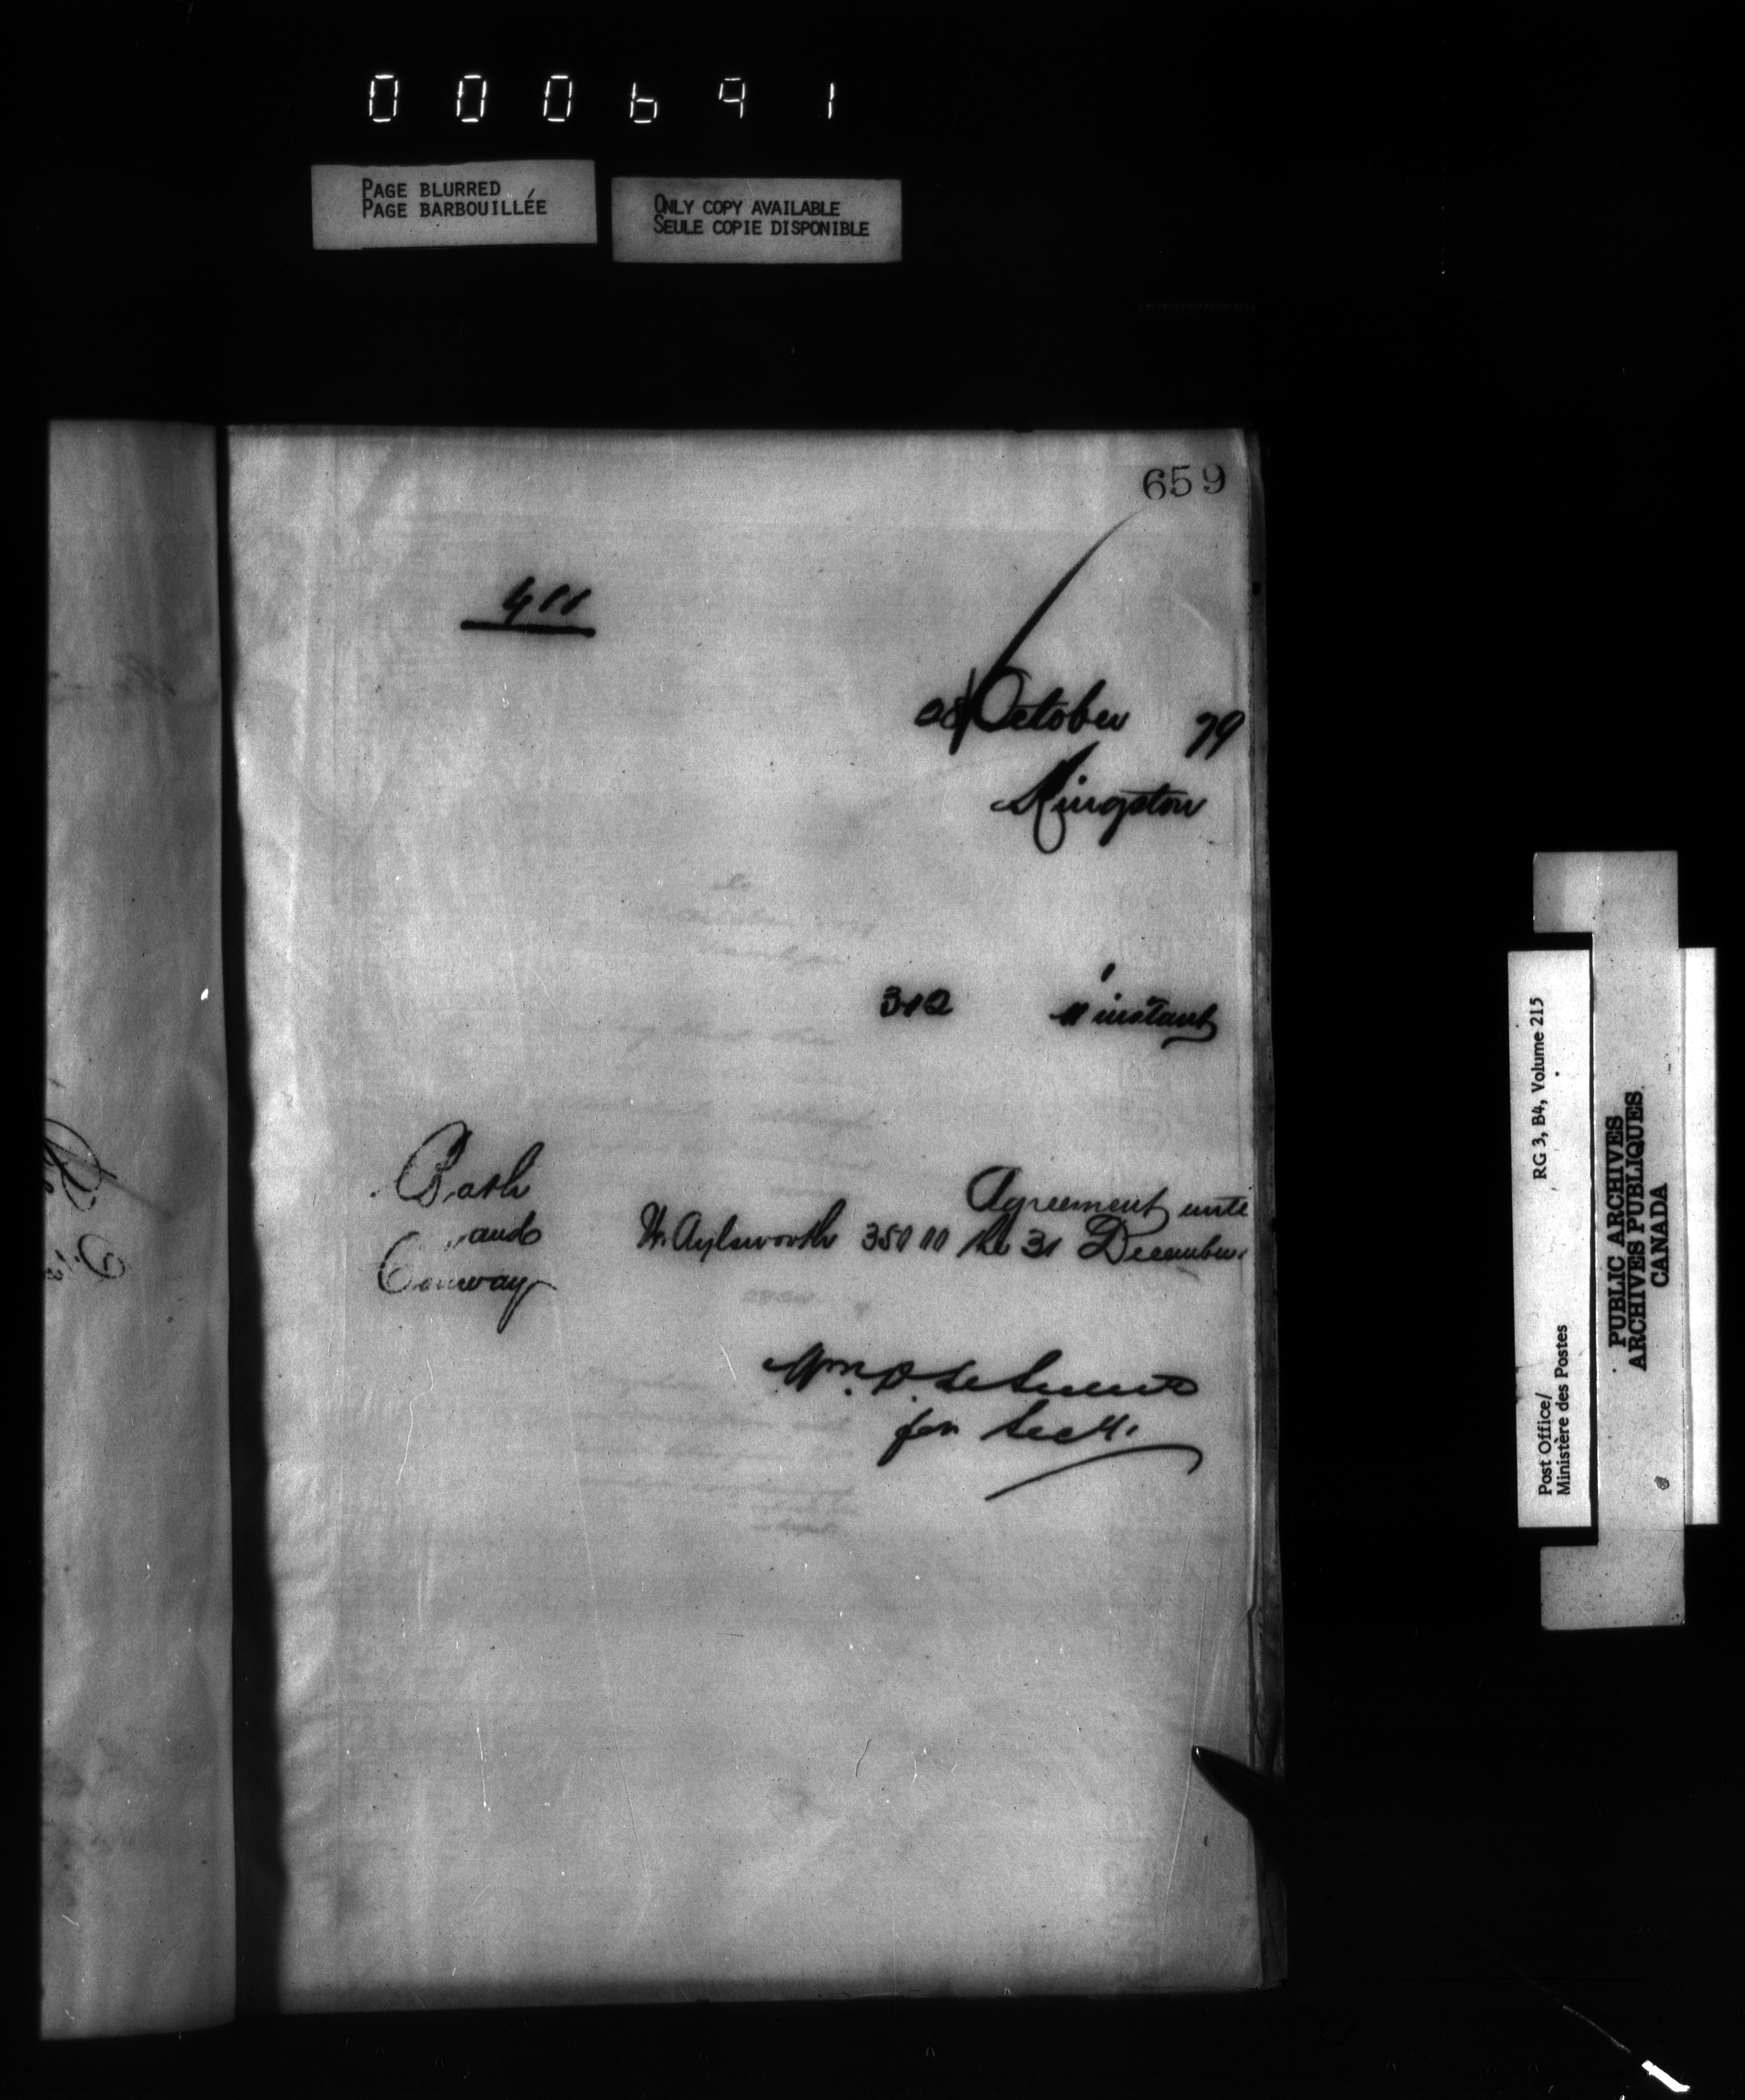 000691
PAGE BLURRED
PAGE BARBOUILLÉE
ONLY COPY AVAILABLE
SEULE COPIE DISPONIBLE
659
411
October 79
Kingston
312 11 instant
Bath
and
Conway
Agreement unti
W. Aylsworth 350 00 the 31 December
Wm.
for Secy.
RG 3, B4, Volume 215
Post Office/
Ministère des Postes
PUBLIC ARCHIVES
ARCHIVES PUBLIQUES
CANADA